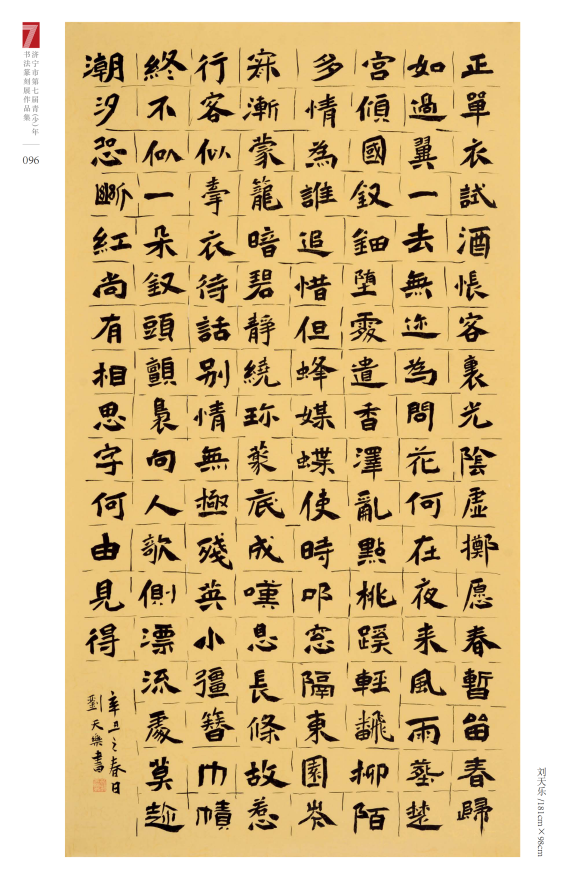 济宁市第七届青(少)年
书法篆刻展作品集
096
正單衣試酒悵客裏光陰虛擲愿春暫留春歸
如過翼一去無迹為問花何在夜来風雨葬楚
宮傾國釵鈿堕處遺香澤亂點桃蹊輕翻柳陌
多情為誰追惜但蜂媒蝶使時叩窓隔東園岑
寂漸蒙籠暗碧靜繞珍叢底成嘆息長條故惹
行客似牽衣待話别情無極殘英小強簪巾幘
終不似一朵釵頭顫裊向人欹側漂流處莫趁
潮汐恐斷紅尚有相思字何由見得
辛丑之春日
劉天樂書
刘天乐/181cm×98cm